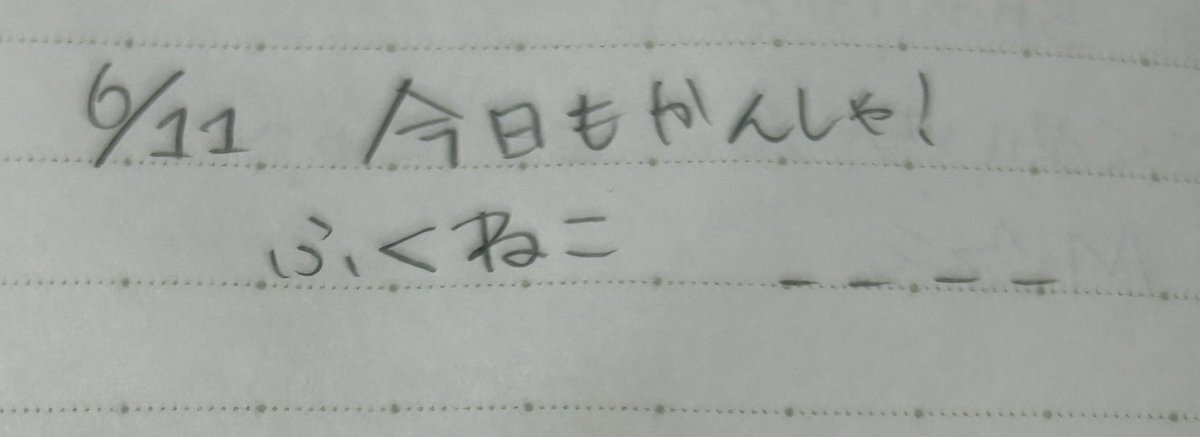 6/11 今日もかんしゃ!
ふくねこ _ _ _ _